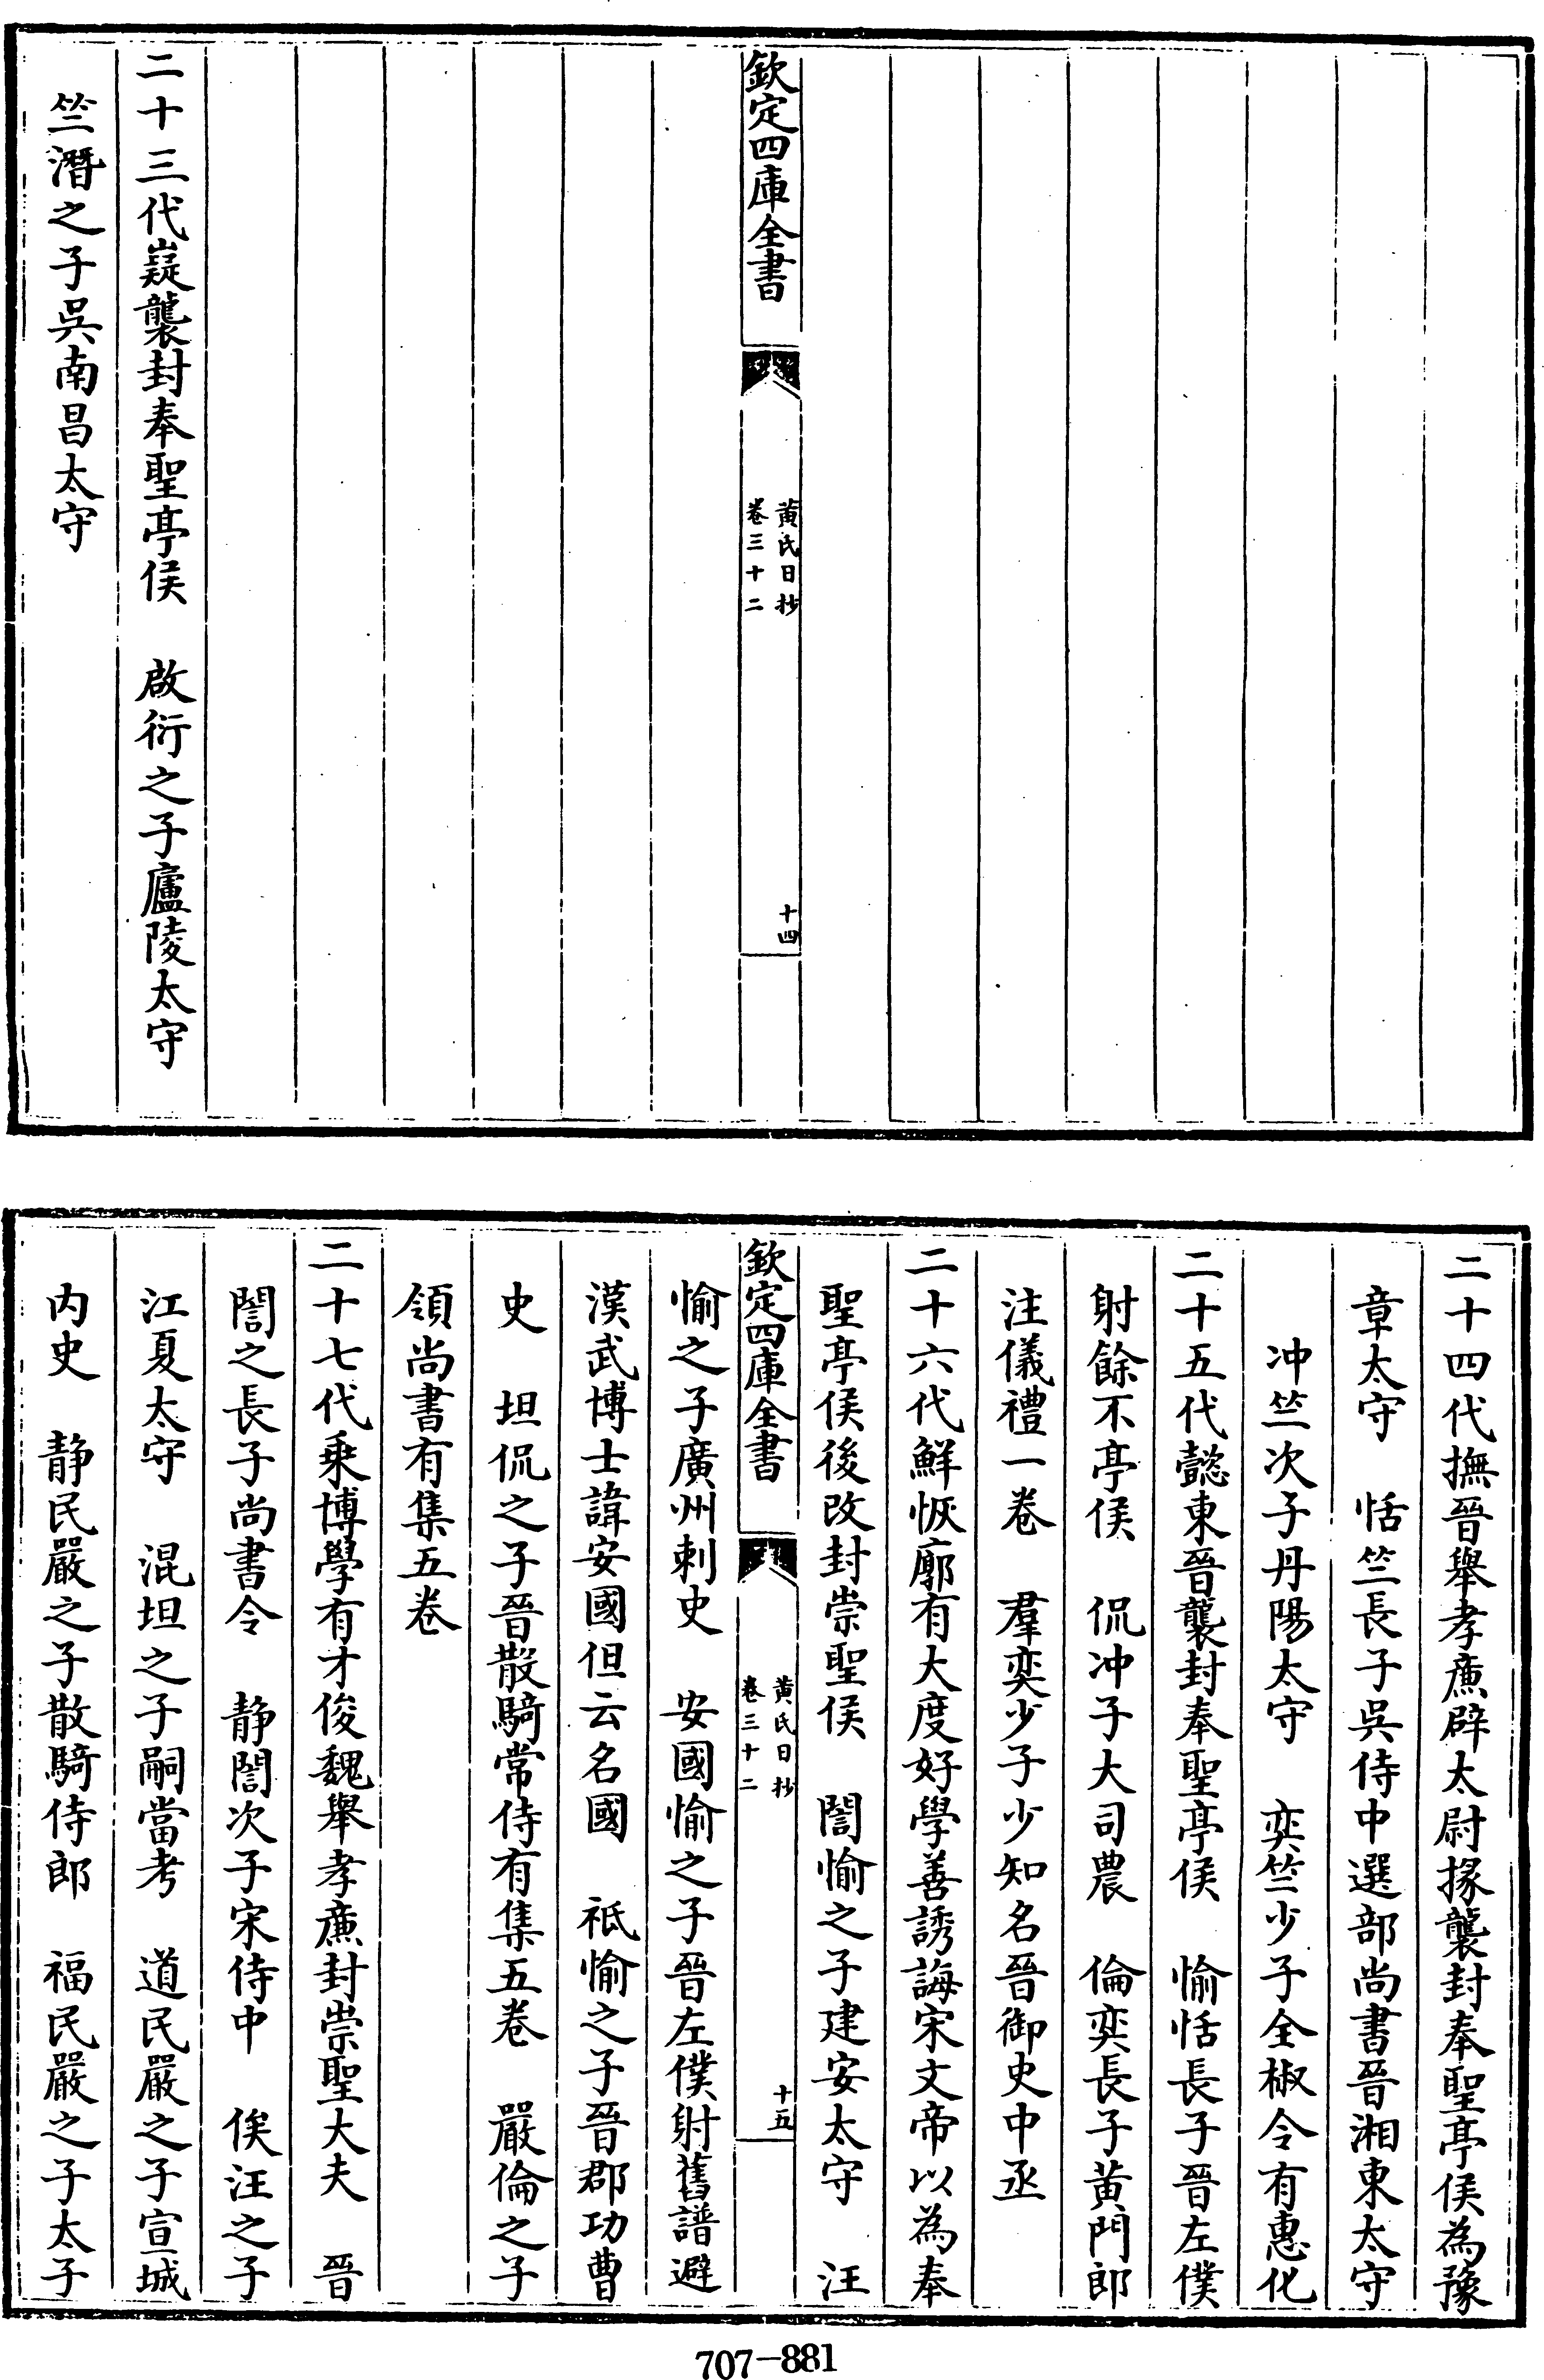 欽定四庫全書
黃氏日抄
卷三十二
十四
二十三代嶷襲封奉聖亭侯　啟衍之子廬陵太守
竺潛之子吳南昌太守
二十四代撫晉舉孝廉辟太尉掾襲封奉聖亭侯為豫
章太守　恬竺長子吳侍中選部尚書晉湘東太守
冲竺次子丹陽太守　奕竺少子全椒令有惠化
二十五代懿東晉襲封奉聖亭侯　愉恬長子晉左僕
射餘不亭侯　侃冲子大司農　倫奕長子黃門郎
注儀禮一卷　羣奕少子少知名晉御史中丞
二十六代鮮恢廓有大度好學善誘誨宋文帝以為奉
聖亭侯後改封崇聖侯　誾愉之子建安太守　汪
欽定四庫全書
黃氏日抄
卷三十二
十五
愉之子廣州刺史　安國愉之子晉左僕射舊譜避
漢武博士諱安國但云名國　祇愉之子晉郡功曹
史　坦侃之子晉散騎常侍有集五卷　嚴倫之子
領尚書有集五卷
二十七代乘博學有才俊魏舉孝廉封崇聖大夫　晉
誾之長子尚書令　静誾次子宋侍中　俟汪之子
江夏太守　混坦之子嗣當考　道民嚴之子宣城
内史　静民嚴之子散騎侍郎　福民嚴之子太子
707-881